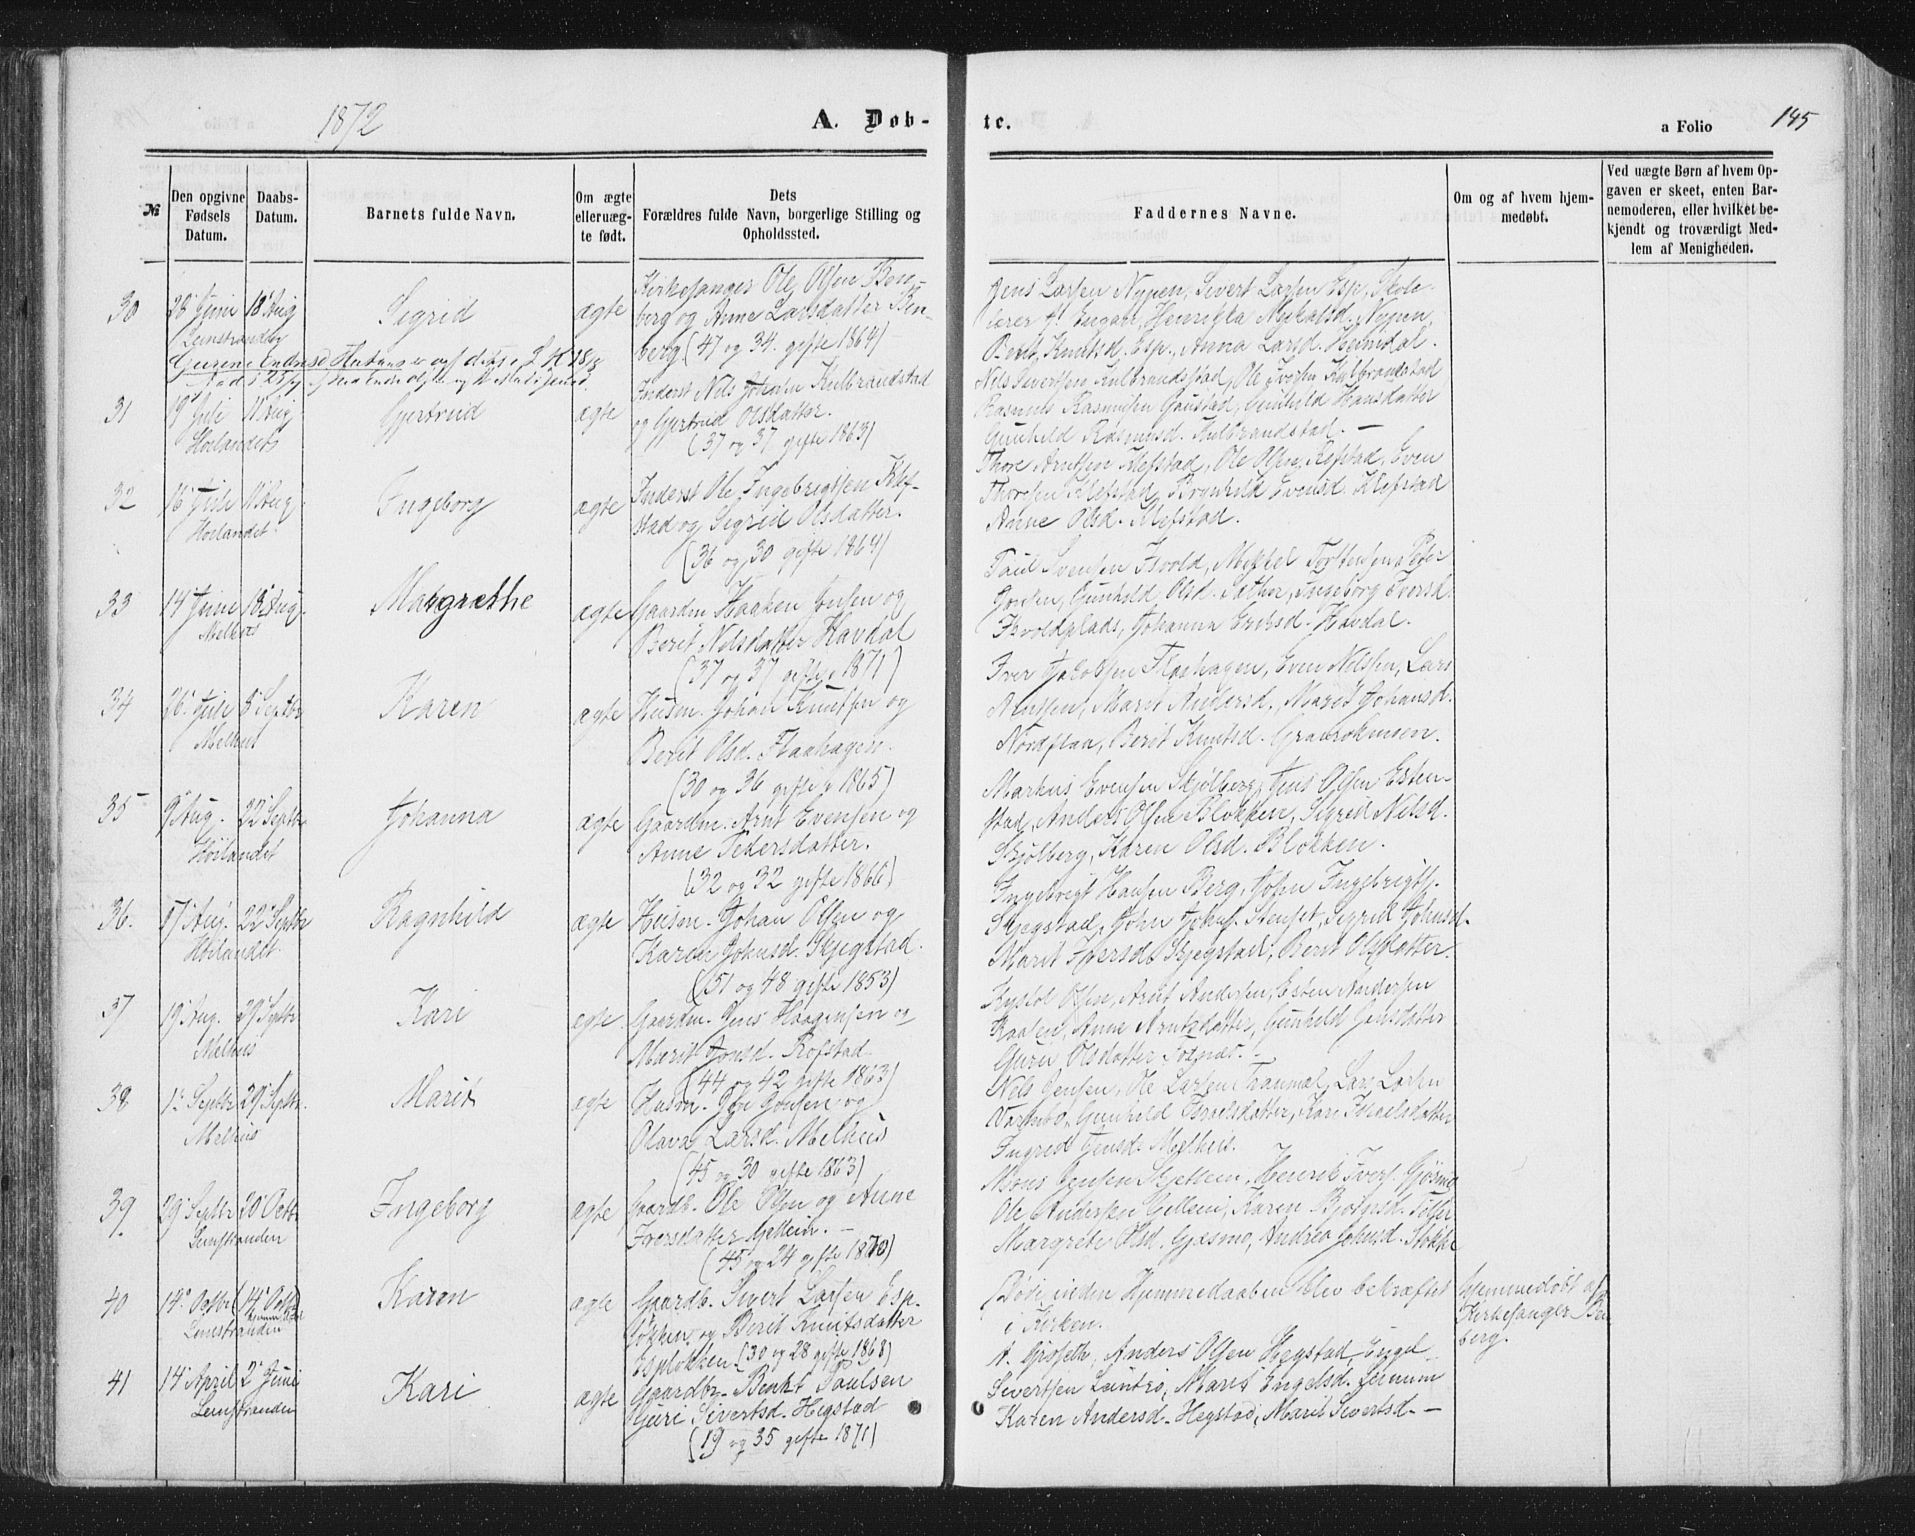 1872
A. Døb-
te.
a Folio
145
№
Den opgivne
Fødsels
Datum.
Daabs-
Datum.
Barnets fulde Navn.
Om ægte
eller uæg-
te født.
Dets
Forældres fulde Navn, borgerlige Stilling og
Opholdssted.
Faddernes Navne.
Om og af hvem hjem-
medøbt.
Ved uægte Børn af hvem Op-
gaven er skeet, enten Bar-
nemoderen, eller hvilket be-
kjendt og troværdigt Med-
lem af Menigheden.
30
28 Juni
18 Aug
Sigrid
ægte
Kirkesanger Ole Olsen Ben-
berg og Anne Larsdatter Ben-
berg (47 og 34 gifte 1864)
Jens Larsen Nypen, Sivert Larsen Esp, Skole-
lærer Engan, Henrikka Mikalsd. Nypen,
Berit Knutsd. Esp, Anna Larsd. Heimdal.
31
19 Juli
11 Aug
Høilandet
Gjertrud
ægte
Inderst Nils Johansen Kulbrandstad
og Gjertrud Olsdatter.
(37 og 37 gifte 1863)
Nils Sivertsen Kulbrandstad, Ole Iversen Kulbrandstad
Rasmus Rasmusen Gaustad, Gunhild Hansdatter
Gunhild Rasmusd. Kulbrandstad. —
32
16 Juli
11 Aug
Høilandet
Ingeborg
ægte
Inderst Ole Ingebrigtsen Klef-
stad og Sigrid Olsdatter.
(36 og 30 gifte 1864)
Thore Arntsen Klefstad, Ole Olsen Rofstad, Even
Thoresen Klefstad, Brynhild Evensd. Klefstad
Anne Olsd. Klefstad.
33
14 Juni
18 Aug
Melhus
Margrethe
ægte
Gaardm. Haaken Jonsen og
Berit Nilsdatter Havdal
(37 og 37 gifte 1871)
Paul Svensen Kvold, Mikkel Peter
Jonsen, Gunhild Olsd. Sather, Ingeborg Iversd.
Kvoldplads, Johanna Eriksd. Havdal.
34
26 Juli
8 Septbr
Melhus
Karen
ægte
Husm. Johan Knutsen og
Berit Olsd. Flaahagen.
(30 og 36 gifte 1865)
Iver Jakobsen Flaahagen, Even Nilsen, Lars
Arntsen, Marit Andersd, Marit Johansd.
Nordflaa, Berit Knutsd.
35
9 Aug.
22 Septbr
Høilandet
Johanna
ægte
Gaardm. Arnt Evensen og
Anne Pedersdatter.
(32 og 32 gifte 1866)
Markus Evensen Skjølberg, Jens Olsen Esten-
stad, Anders Olsen Blokken, Sigrid Nilsd.
Skjølberg, Karen Olsd. Blokken.
36.
17 Aug.
22 Septbr
Høilandet
Ragnhild
ægte
Husm. Johan Olsen og
Karen Johnsd. Skjegstad.
(51 og 48 gifte 1853)
Ingebrigt Hansen Berg, John Ingebrigts.
Skjegstad, John Johns. Stenset, Sigrid Johnsd.
Marit Iversd. Skjegstad, Berit Olsdatter.
37
19 Aug.
29 Septbr
Melhus
Kari
ægte
Gaardm. Jens Haagensen og
Marit Jonsd. Rofstad
(44 og 42 gifte 1863)
Kystol Olsen, Arnt Andersen, Esten Andersen
Kaalen, Anne Arntsdatter, Gunhild Jensdatter
Guru Olsdatter
38
1 Septbr
29 Septbr.
Melhus
Marit
ægte
Husm. Jens Jonsen og
Olava Larsd. Melhus
(45 og 30 gifte 1863)
Nils Jensen, Ole Larsen Tranmal, Lars Larsen
Varmbo, Gunhild Israelsdatter, Kari Israelsdatter
Ingrid Jensd. Melhus.
39.
29 Septbr
20 Octbr.
Leinstranden
Ingeborg
ægte
Gaardb. Ole Olsen og Anne
Iversdatter Gellein. —
(45 og 24 gifte 1870)
Mons Jensen Skjetlein, Henrik Ivers. Gjøsmo
Ole Andersen Gellein, Karen Bjørnsd.
Margrete Olsd. Gjæsmo, Andrea Johnsd.
40
14 Octbr
(14 Octbr
Leinstranden
Karen
ægte
Gaardb. Sivert Larsen Esp-
løkken og Berit Knutsdatter
Espløkken (30 og 28 gifte 1868)
Døde inden Hjemmedaaben blev bekræftet
i Kirken.
hjemmedøbt af
Kirkesanger Ben-
berg.
41
14 April
2 Juni
Leinstranden
Kari
ægte
Gaardbr. Benkt Paulsen
Guri Sivertsd. Hegstad
(19 og 35 gifte 1871)
A. Groseth, Anders Olsen Hegstad, Engel
Sivertsen, Marit Engelsd.
Karen Andersd. Hegstad, Marit Sivertsd. —